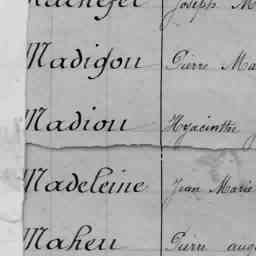 Joseph M
Madigou Pierre Ma
Madiou Hyacinthe
Madeleine Jean Marie
Maheu Pierre aug